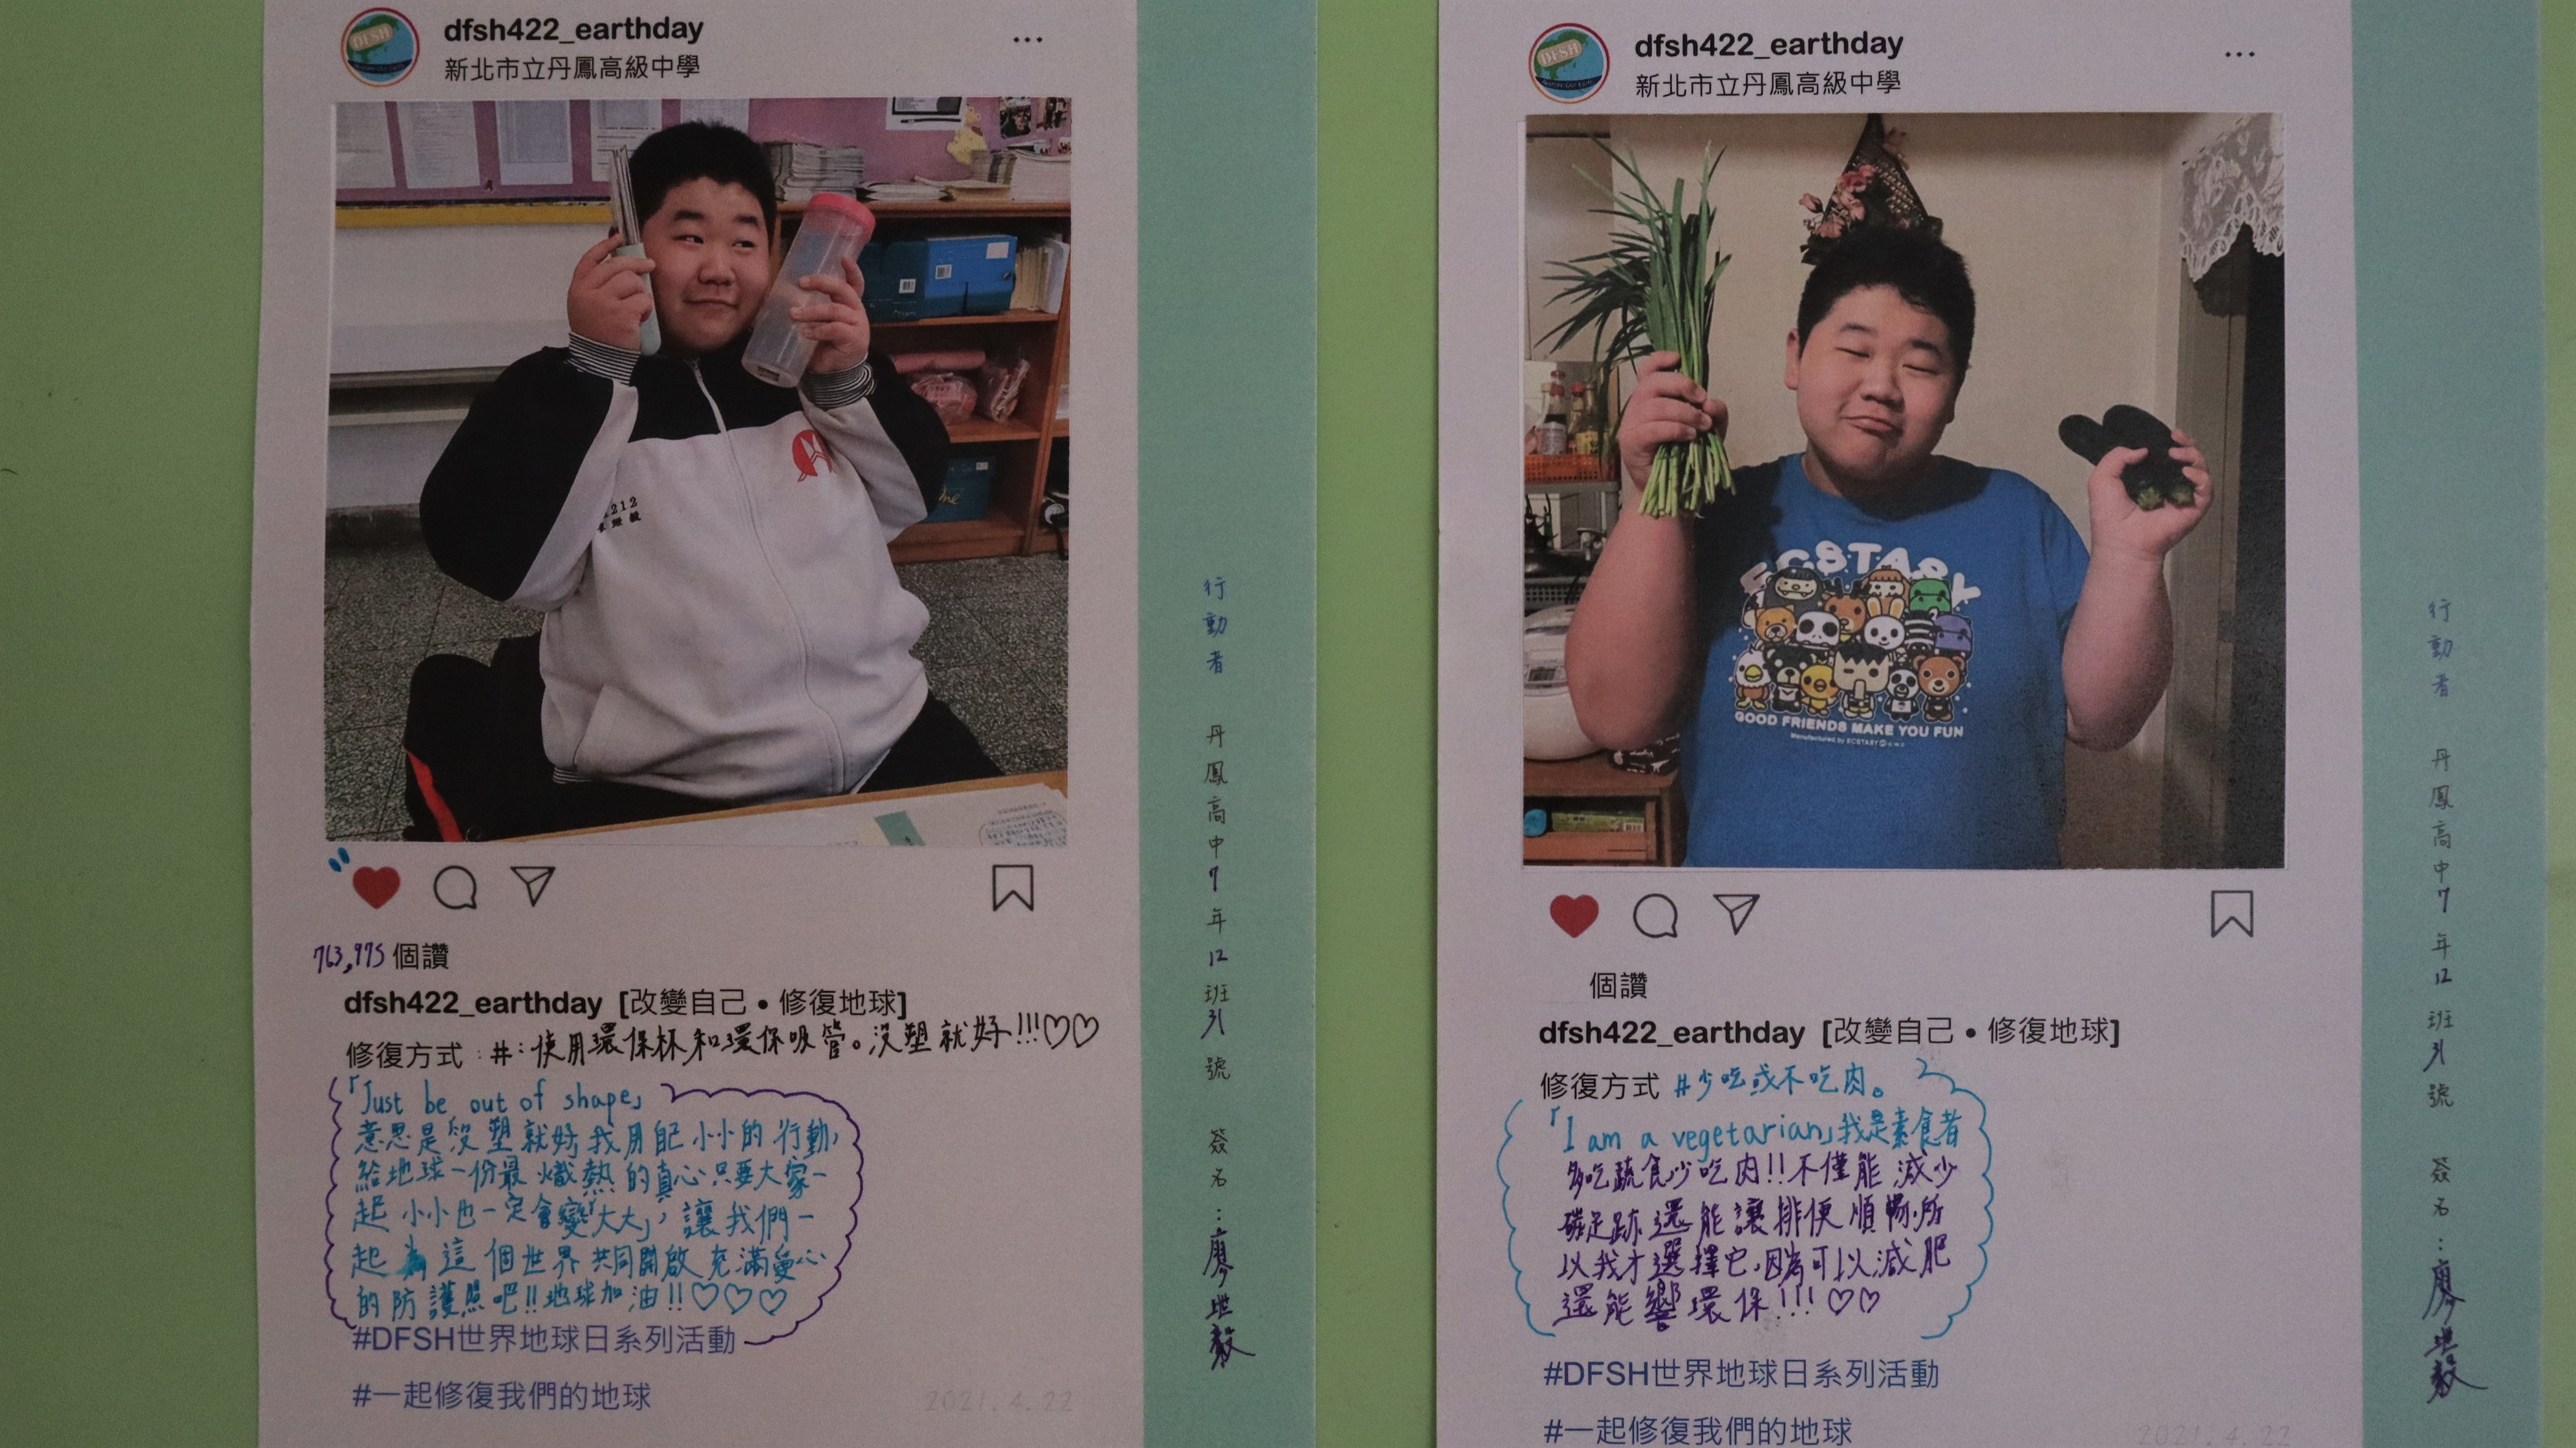 dfsh422_earthday
新北市立丹鳳高級中學
763,975 個讚
dfsh422_earthday [改變自己•修復地球]
修復方式:#:使用環保杯和環保吸管。沒塑就好!!!♡♡
「Just be out of shape」
意思是沒塑就好我用自己小小的行動,
給地球一份最熾熱的真心只要大家一
起小小也一定會變「大大」,讓我們一
起為這個世界共同開啟充滿愛心
的防護照吧!!地球加油!!♡♡♡
#DFSH世界地球日系列活動
#一起修復我們的地球
2021.4.22
行動者 丹鳳高中7年12班31號 簽名:廖世毅
dfsh422_earthday
新北市立丹鳳高級中學
ECSTASY
GOOD FRIENDS MAKE YOU FUN
Manufactured by ECSTASY
個讚
dfsh422_earthday [改變自己•修復地球]
修復方式 #少吃或不吃肉。
「I am a vegetarian」我是素食者
多吃蔬食少吃肉!!不僅能減少
碳足跡還能讓排便順暢,所
以我才選擇它,因為可以減肥
還能響環保!!!♡♡
#DFSH世界地球日系列活動
#一起修復我們的地球
2021.4.22
行動者 丹鳳高中7年12班31號 簽名:廖世毅